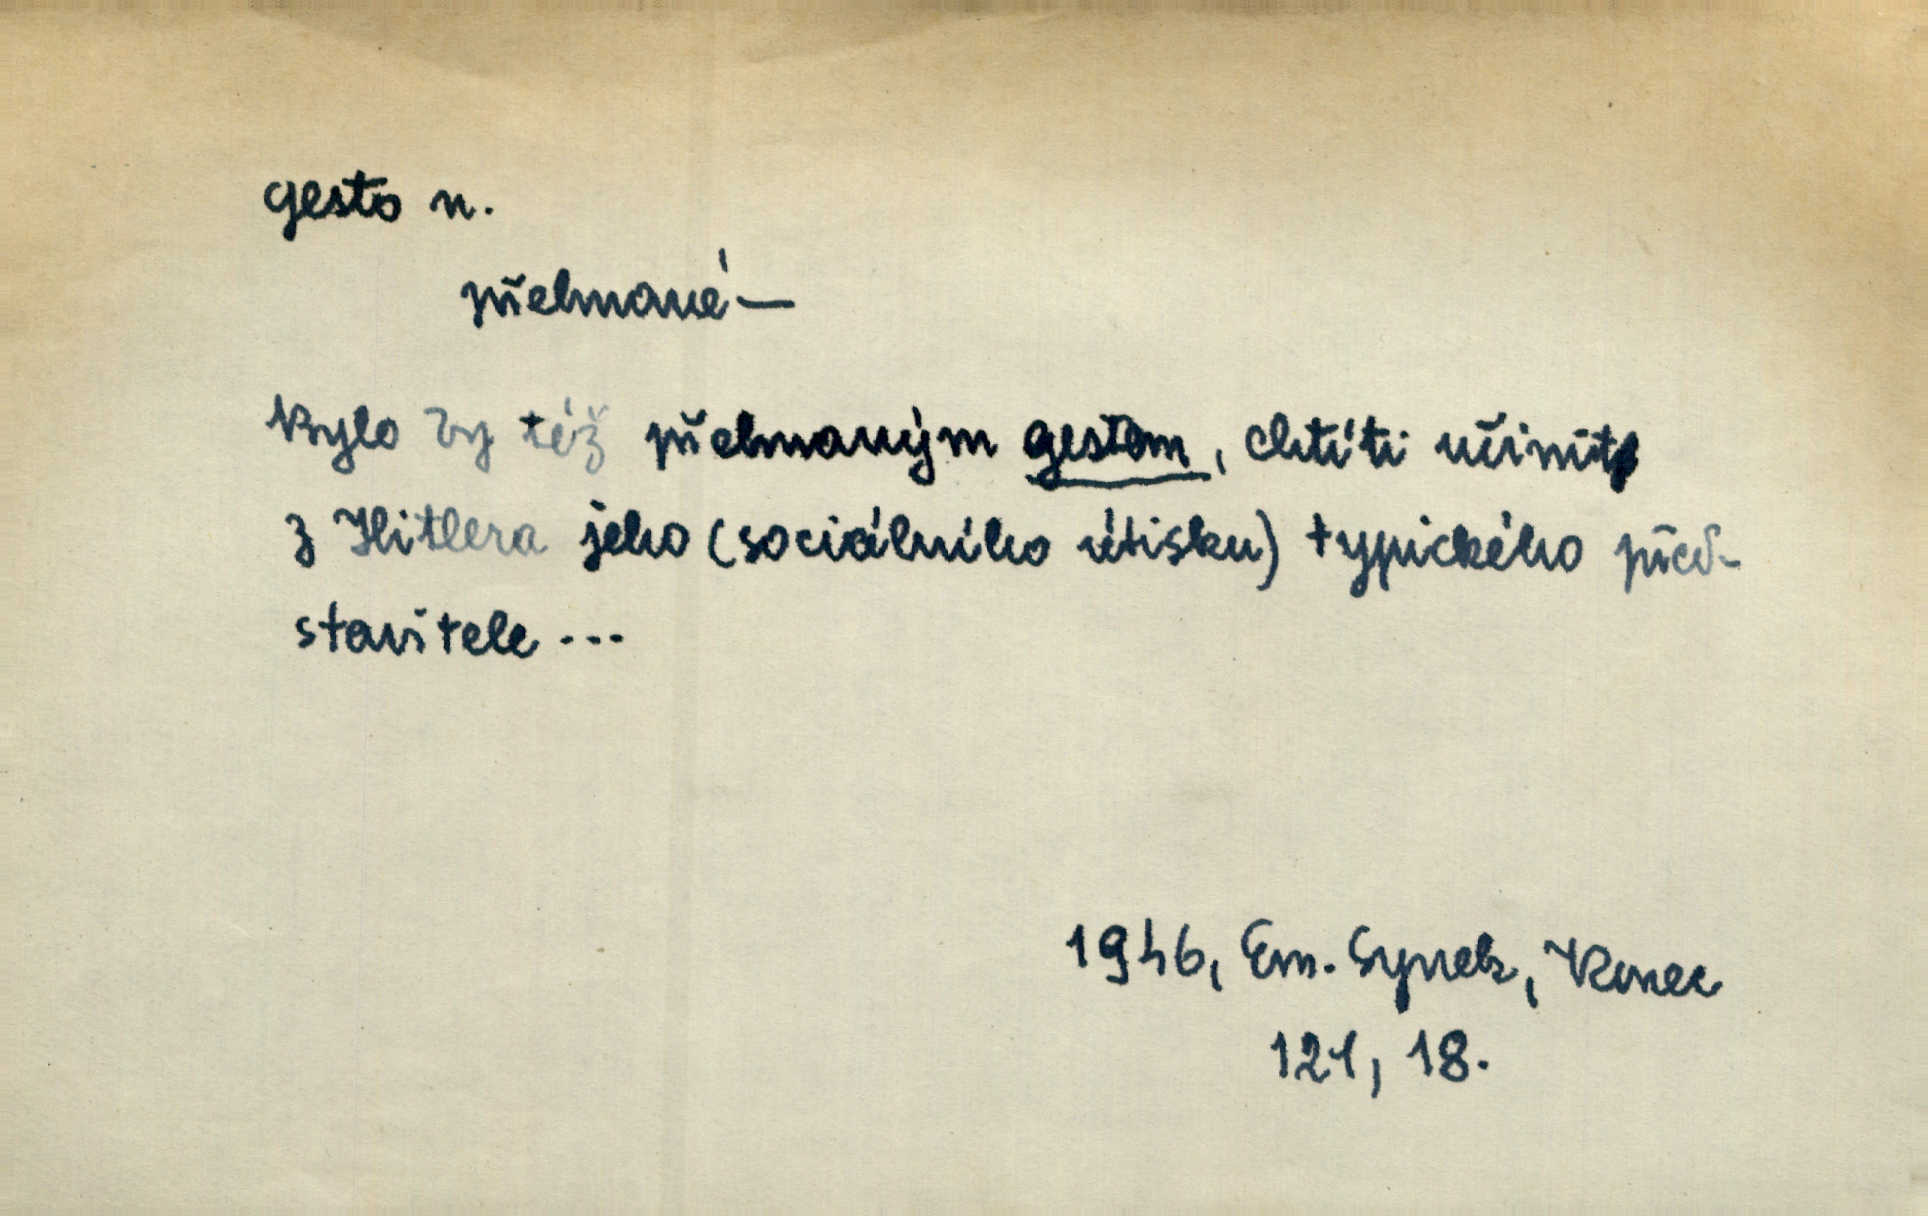 gesto n.
přelmané —
Bylo by též přelmaným gestem, chtíti učinit
z Hitlera jeho (sociálního útisku) typického před-
stavitele ...
1946, Em. Synek, Konec
121, 18.